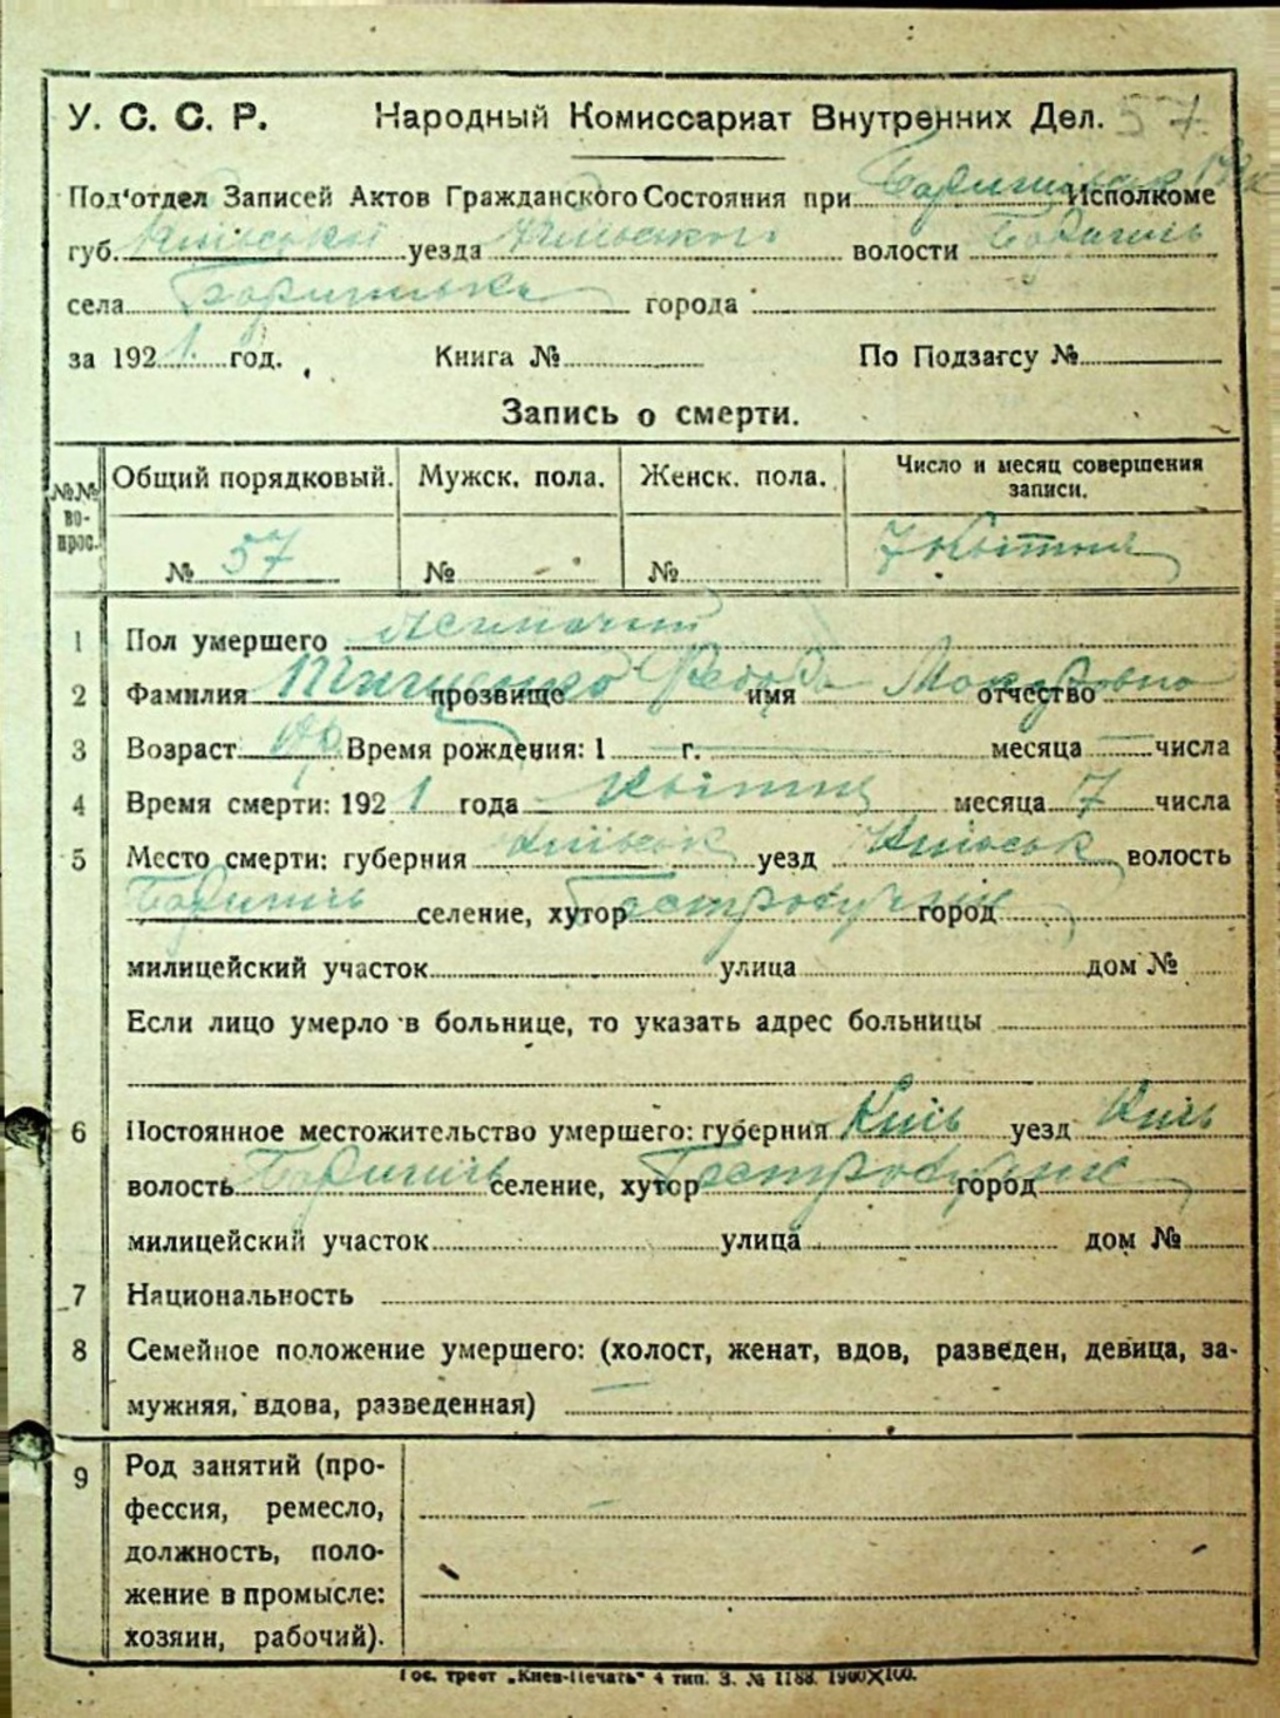 57
У. С. С. Р. Народный Комиссариат Внутренних Дел.
Под'отдел Записей Актов Гражданского Состояния при Исполкоме
губ. Київської уезда Київського волости Бориспіль
села города
за 1921 год. Книга № По Подзагсу №
Запись о смерти.
№№ вопрос. Общий порядковый. Мужск. пола. Женск. пола. Число и месяц совершения записи.
№ 57 № № 7 Квітня
1 Пол умершего жіночий
2 Фамилия Тищенко прозвище Федора имя Макаровна отчество
3 Возраст Время рождения: 1 г. месяца числа
4 Время смерти: 1921 года Квітня месяца 7 числа
5 Место смерти: губерния Київськ уезд Київськ волость
Бориспіль селение, хутор город
милицейский участок улица дом №
Если лицо умерло в больнице, то указать адрес больницы
6 Постоянное местожительство умершего: губерния Київ уезд Київ
волость Бориспіль селение, хутор город
милицейский участок улица дом №
7 Национальность
8 Семейное положение умершего: (холост, женат, вдов, разведен, девица, за-
мужняя, вдова, разведенная)
9 Род занятий (про-
фессия, ремесло,
должность, поло-
жение в промысле:
хозяин, рабочий).
Гос. трест „Киев-Печать“ 4 тип. З. № 1188. 1900X100.